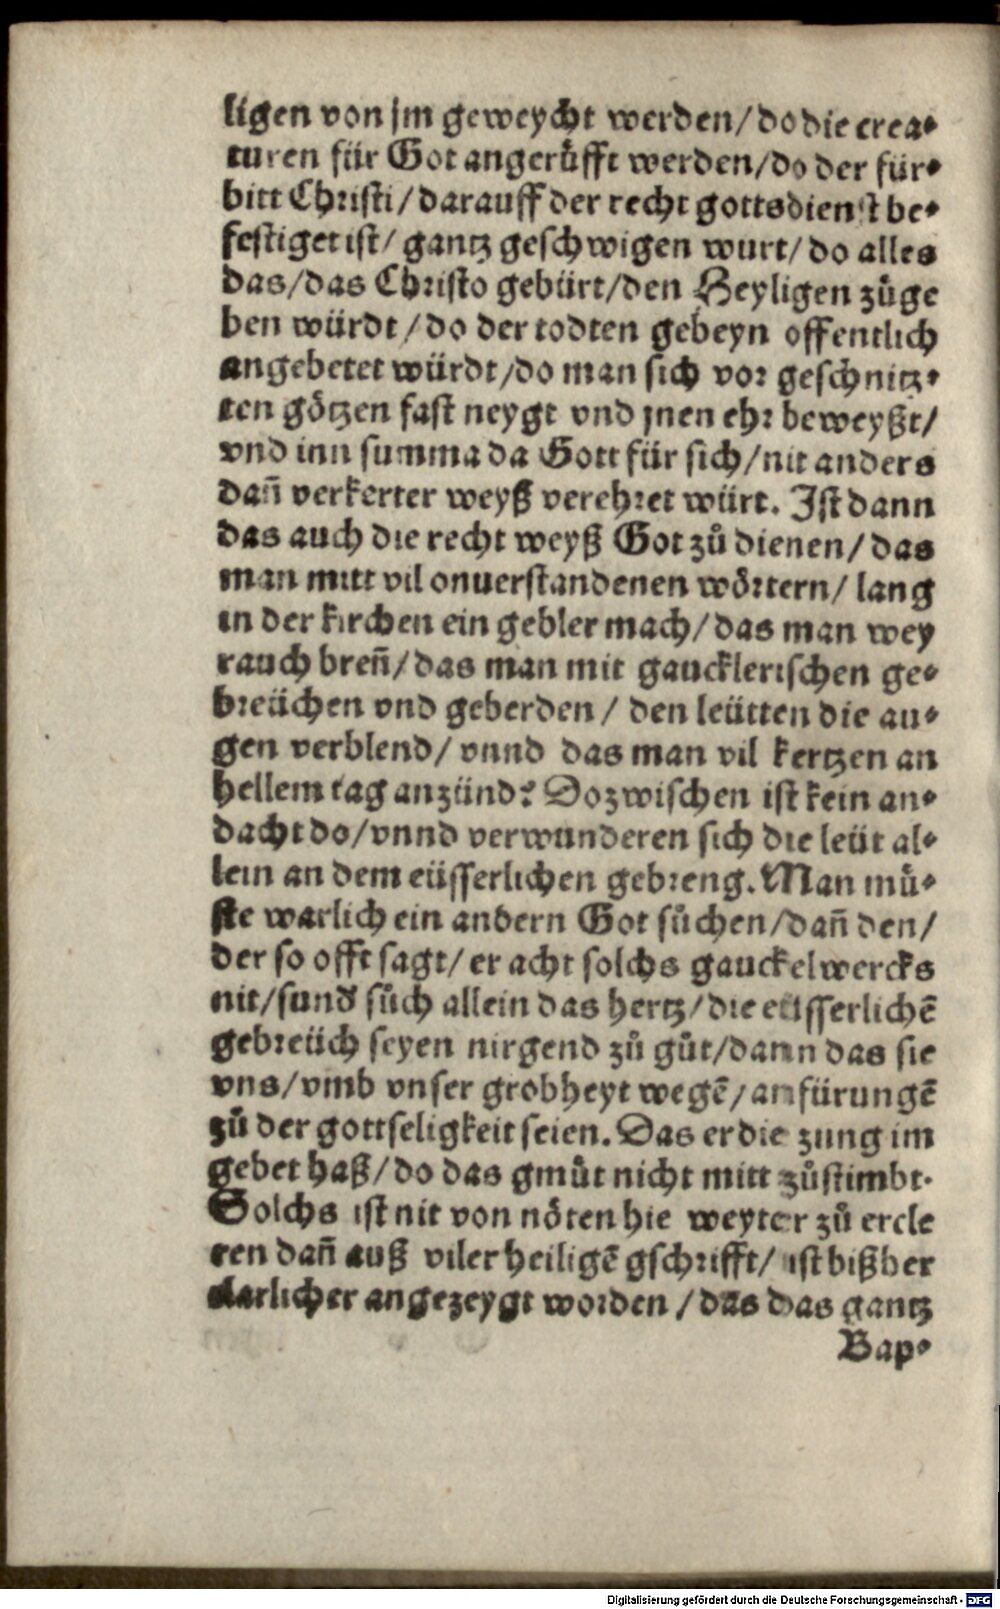 ligen von jm geweycht werden/ do die crea⸗
turen für Got angerůfft werden/do der für⸗
bitt Christi/ darauff der recht gottsdienst be⸗
festiget ist/ gantz geschwigen wurt/ do alles
das/das Christo gebürt/den Heyligen zůge
ben würdt/do der todten gebeyn offentlich
angebetet würdt/do man sich vor geschnitz⸗
ten götzen fast neygt vnd jnen ehr beweyßt/
vnd inn summa da Gott für sich/nit anders
dañ verkerter weyß verehret würt. Ist dann
das auch die recht weyß Got zů dienen/ das
man mitt vil onuerstandenen wörtern/ lang
in der kirchen ein gebler mach/ das man wey
rauch breñ/das man mit gaucklerischen ge⸗
breüchen vnd geberden/ den leütten die au⸗
gen verblend/ vnnd das man vil kertzen an
hellem tag anzünd? Dozwischen ist kein an⸗
dacht do/vnnd verwunderen sich die leüt al⸗
lein an dem eüsserlichen gebreng. Man mů⸗
ste warlich ein andern Got sůchen/dañ den/
der so offt sagt/ er acht solchs gauckelwercks
nit/sund̾ sůch allein das hertz/die eüsserlichẽ
gebreüch seyen nirgend zů gůt/dann das sie
vns/vmb vnser grobheyt wegẽ/anfürungẽ
zů der gottseligkeit seien. Das er die zung im
gebet haß/do das gmůt nicht mitt zůstimbt.
Solchs ist nit von nöten hie weyter zů ercle
ren dañ auß viler heiligẽ gschrifft/ ist bißher
clarlicher angezeygt worden/das das gantz
Bap⸗
Digitalisierung gefördert durch die Deutsche Forschungsgemeinschaft - DFG